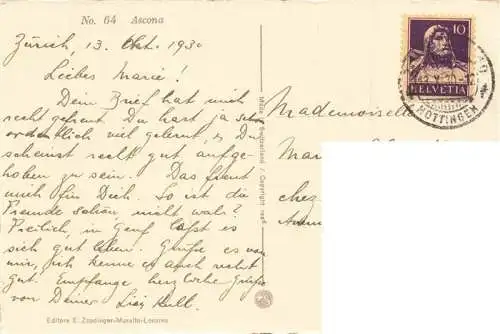 No. 64 Ascona
Zürich, 13. Okt. 1930
Liebes Marie!
Dein Brief hat mich
recht gefreut. Du hast ja schon
ordentlich viel gelernt, es Du
scheinst recht gut aufge-
hoben zu sein. Das freut
mich für Dich. So ist die
Fremde schön, nicht wahr?
Freilich, in Genf lässt es
sich gut leben. Grüsse es von
mir, ich kenne es auch recht
gut. Empfange herzliche Grüsse
von Deiner
Editore E. Zzedinger-Muralto-Locarno
Made in Switzerland / Copyright
10
HELVETIA
HOTTINGEN
Mademoiselle
chez